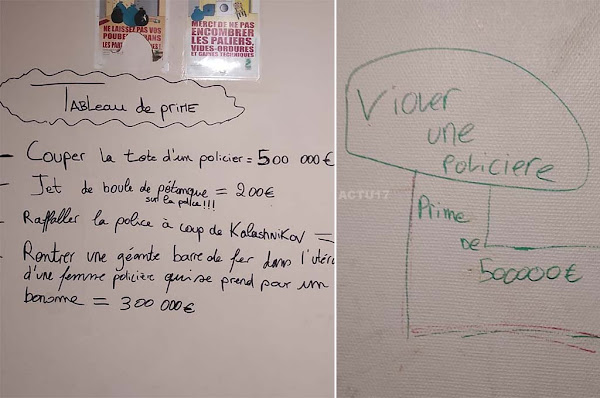 NE LAISSEZ PAS VOS
LES
MERCI DE NE PAS
ENCOMBRER
LES PALIERS,
VIDES-ORDURES
ET GAINES TECHNIQUES
TABLeau de PRIME
- Couper la tete d'un policier = 500 000€
- Jet de boule de pétanque = 200€
sur la police!!!
- Raffaller la police à coup de Kalashnikov =
- Rentrer une géante barre de fer dans l'utér
d'une femme policière qui se prend pour un
bonomme = 300 000€
Violer
une
Policiere
ACTU17
Prime
De
500000€